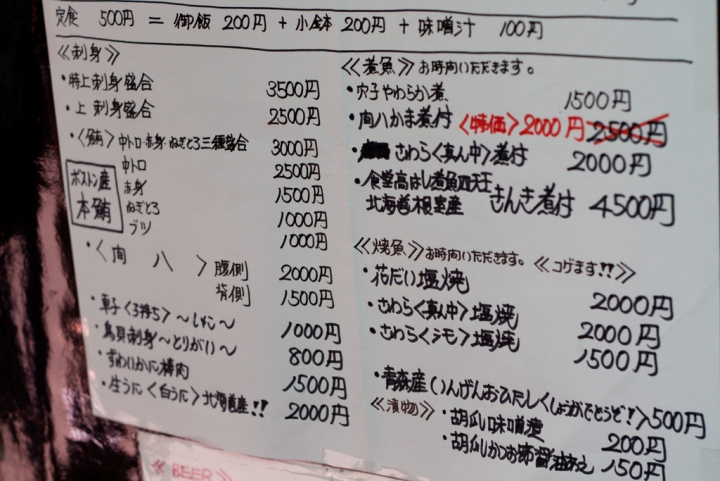 定食 500円 = 御飯 200円 + 小鉢 200円 + 味噌汁 100円
≪刺身≫
・特上刺身盛合 3500円
・上刺身盛合 2500円
・〈鮪〉中トロ・赤身・ねぎとろ三種盛合 3000円
ボストン産
本鮪
中トロ 2500円
赤身 1500円
ねぎとろ 1000円
ブツ 1000円
・〈向八〉腹側 2000円
背側 1500円
・車子〈子持ち〉〜しゃこ〜 1000円
・鳥貝刺身〜とりがい〜 800円
・ずわいかに棒肉 1500円
・生うに〈白うに〉北海道産!! 2000円
≪煮魚≫お時間いただきます。
・穴子やわらか煮 1500円
・向八かま煮付〈特価〉2000円 2500円
・さわらく真ん中〉煮付 2000円
・食堂高はし煮魚四天王
北海道根室産 きんき煮付 4500円
≪焼魚≫お時間いただきます。≪コゲます!!≫
・花だい塩焼 2000円
・さわらく真ん中〉塩焼 2000円
・さわらく〉塩焼 1500円
・青森産〈いんげんおひたしくしょうがでどうぞ!〉500円
≪漬物≫・胡瓜味噌漬 200円
・胡瓜かつお節醤油あえ 150円
≪BEER≫